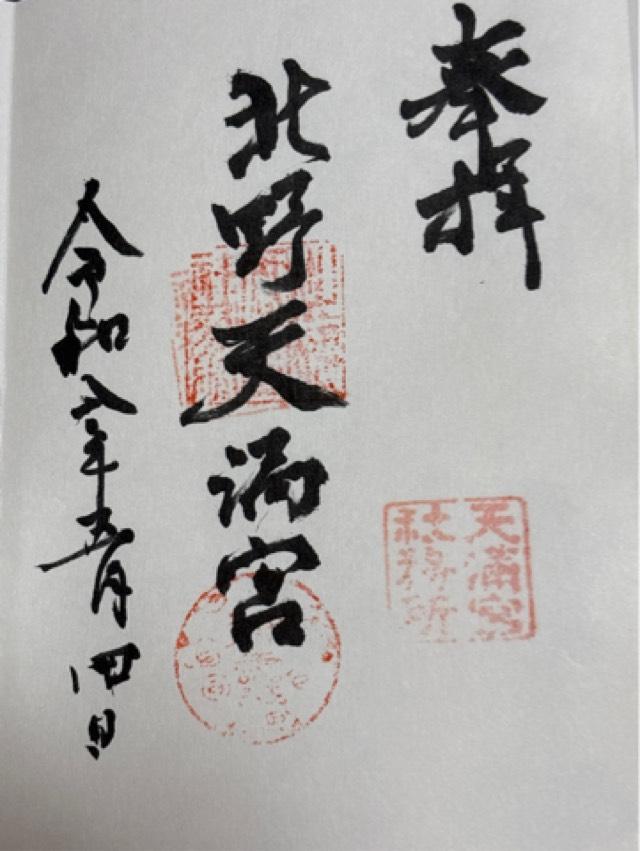 奉拝
天満宮
社務所
北野天満宮
令和八年五月四日